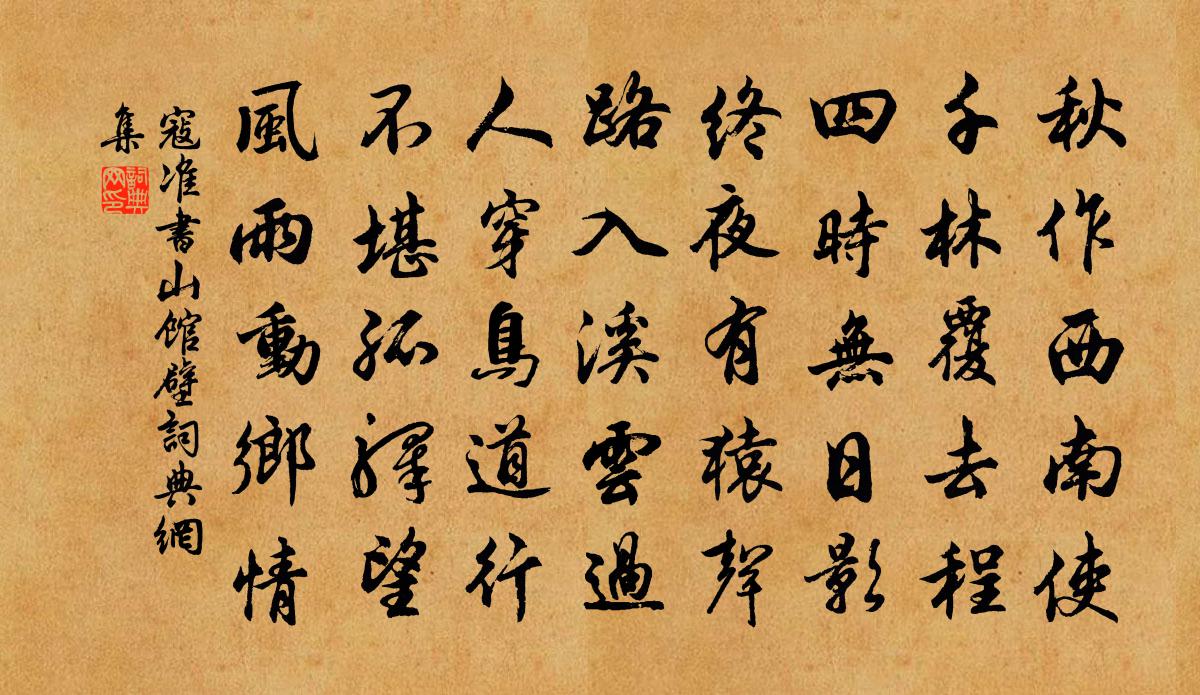 秋作西南使
千林覆去程
四時無日影
終夜有猿聲
路入溪雲過
人穿鳥道行
不堪孤驛望
風雨動鄉情
寇准書山館壁詞典網
集
詞典網印